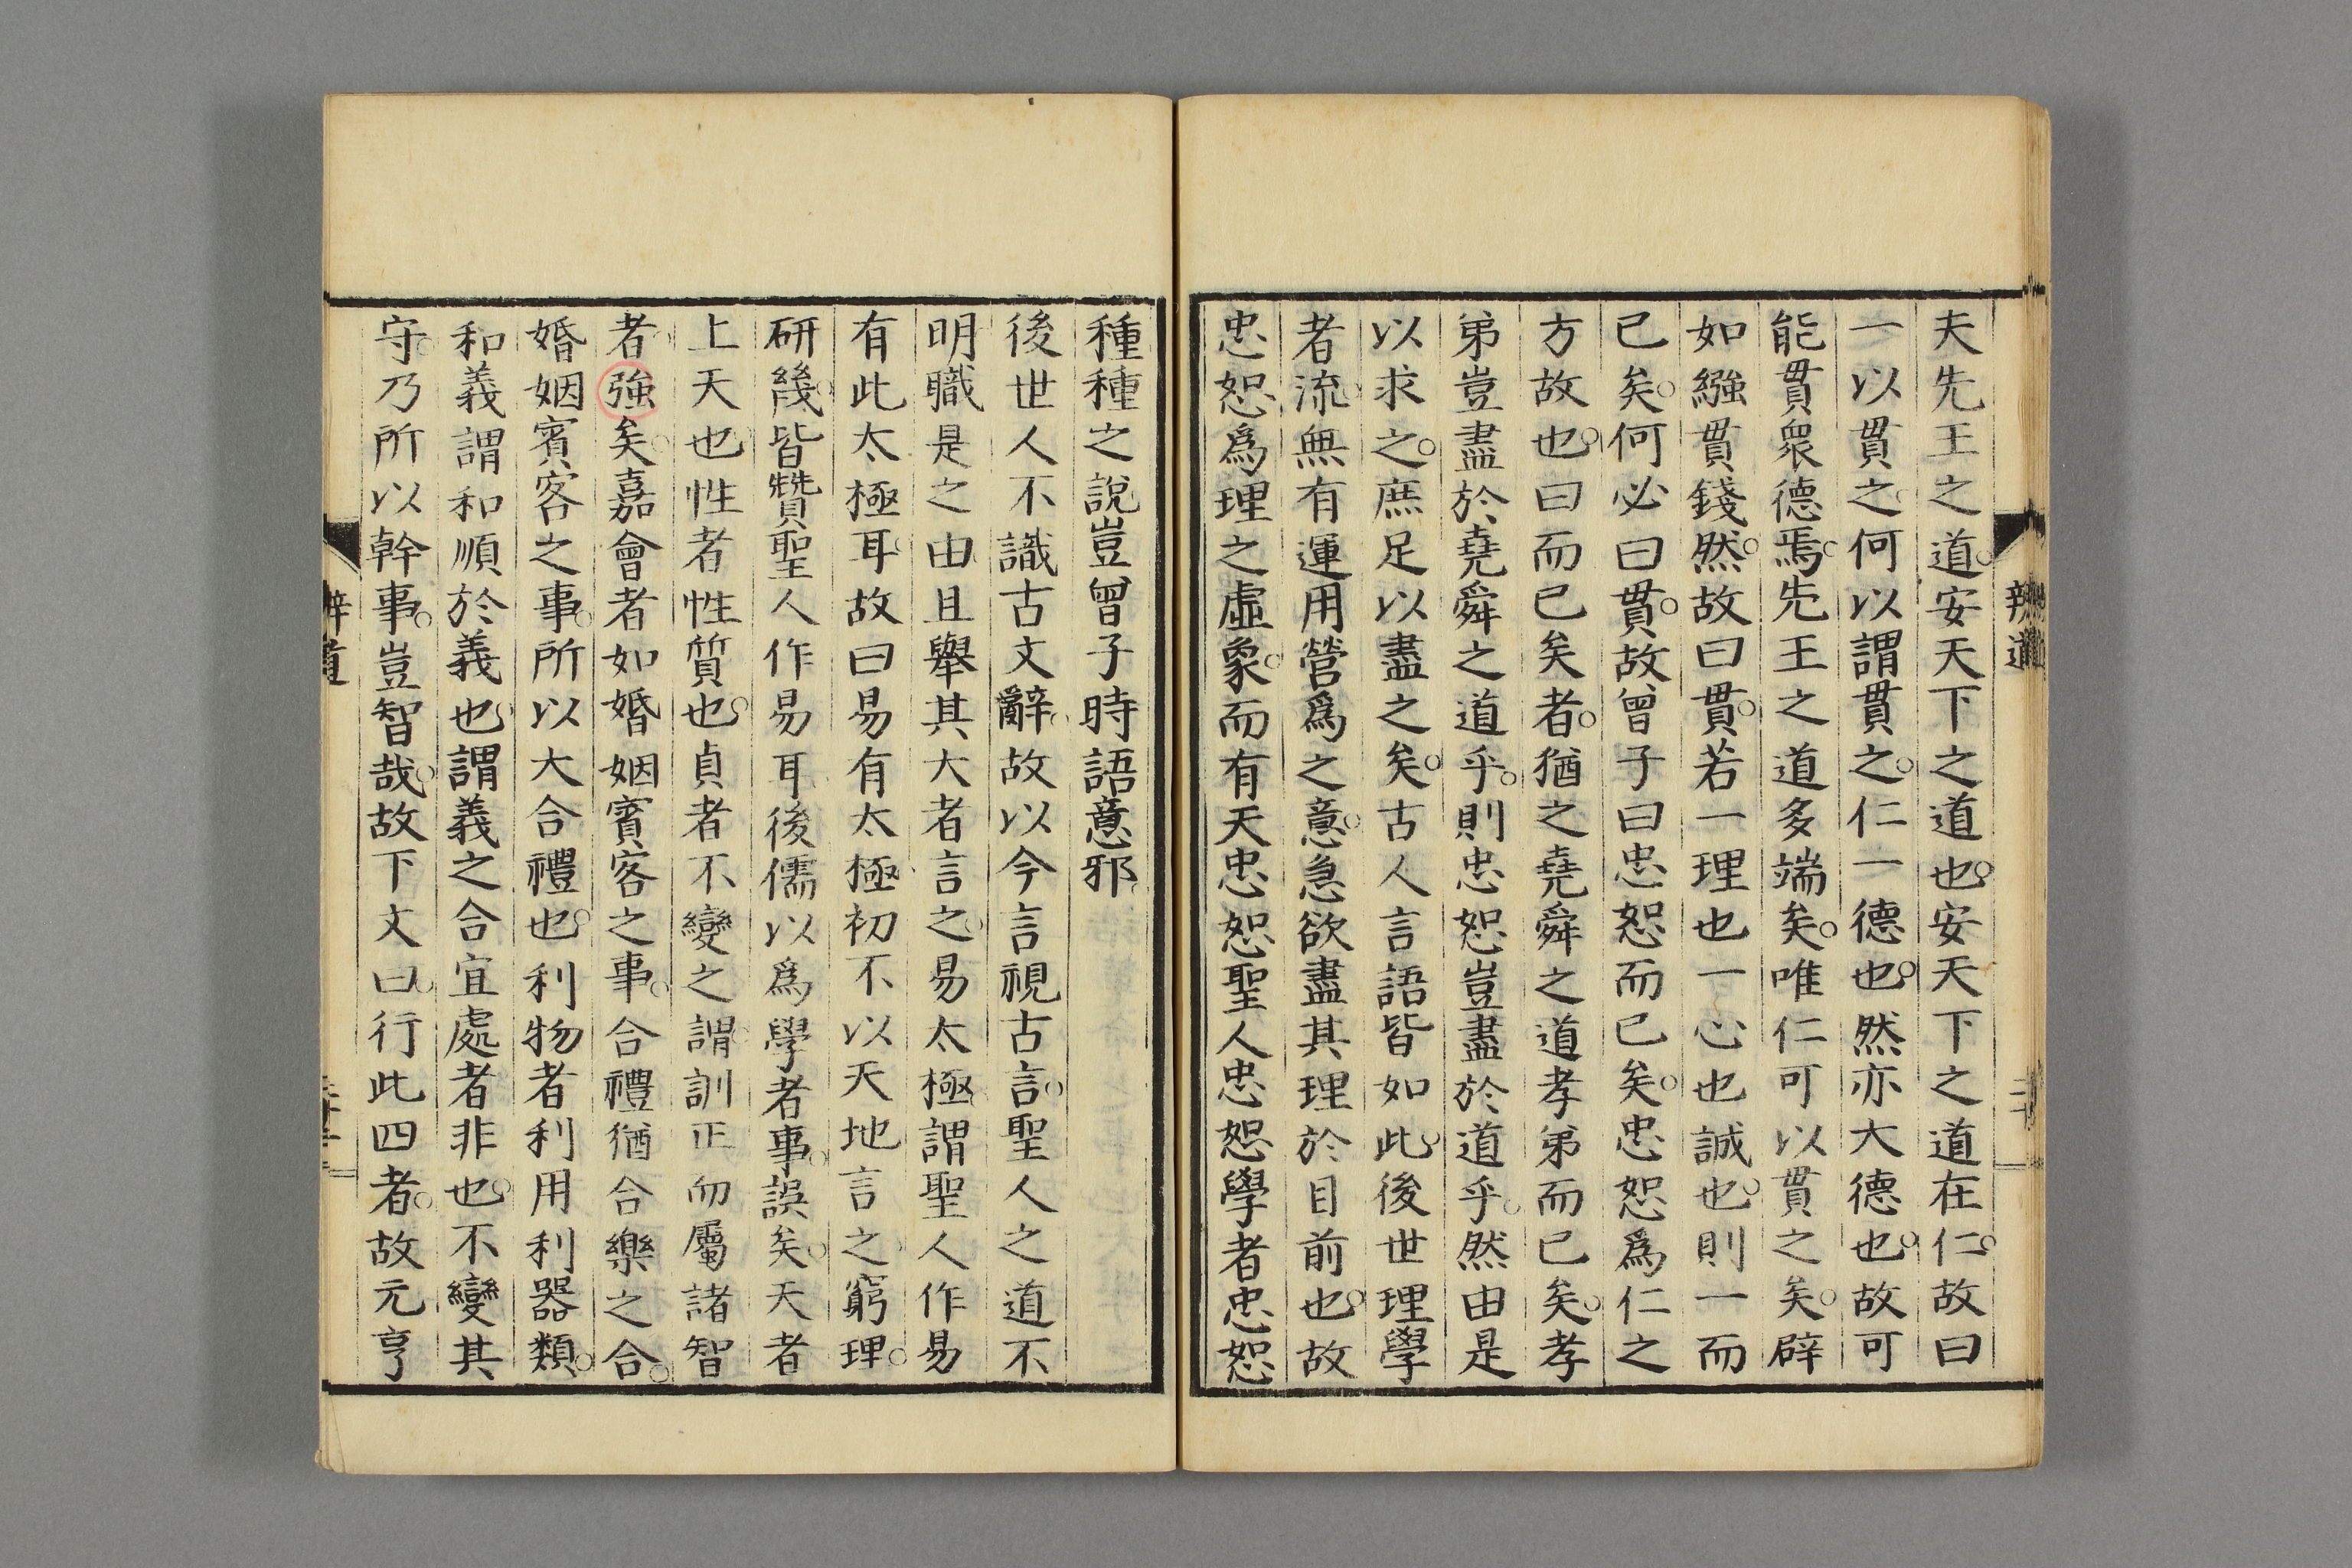 夫先王之道。安天下之道也。安天下之道在仁。故曰
一以貫之。何以謂貫之。仁一德也。然亦大德也。故可
能貫衆德焉。先王之道多端矣。唯仁可以貫之矣。辟
如繦貫錢然。故曰貫。若一理也一心也誠也。則一而
已矣。何必曰貫。故曾子曰忠恕而已矣。忠恕爲仁之
方故也。曰而已矣者。猶之堯舜之道孝弟而已矣。孝
弟豈盡於堯舜之道乎。則忠恕豈盡於道乎。然由是
以求之。庶足以盡之矣。古人言語皆如此。後世理學
者流。無有運用營爲之意。急欲盡其理於目前也。故
忠恕爲理之虛象。而有天忠恕聖人忠恕學者忠恕
辨道
二十
種種之說豈曾子時語意邪
後世人不識古文辭。故以今言視古言。聖人之道不
明職是之由且舉其大者言之。易太極謂聖人作易
有此太極耳。故曰易有太極初不以天地言之窮理。
研幾。皆贊聖人作易耳後儒以爲學者事。誤矣。天者
上天也性者性質也。貞者不變之謂。訓正而屬諸智
者。強矣。嘉會者如婚姻賓客之事。合禮猶合樂之合。
婚姻賓客之事。所以大合禮也。利物者利用利器類。
和義謂和順於義也。謂義之合宜處者非也。不變其
守。乃所以幹事。豈智哉。故下文曰。行此四者。故元亨
辨道